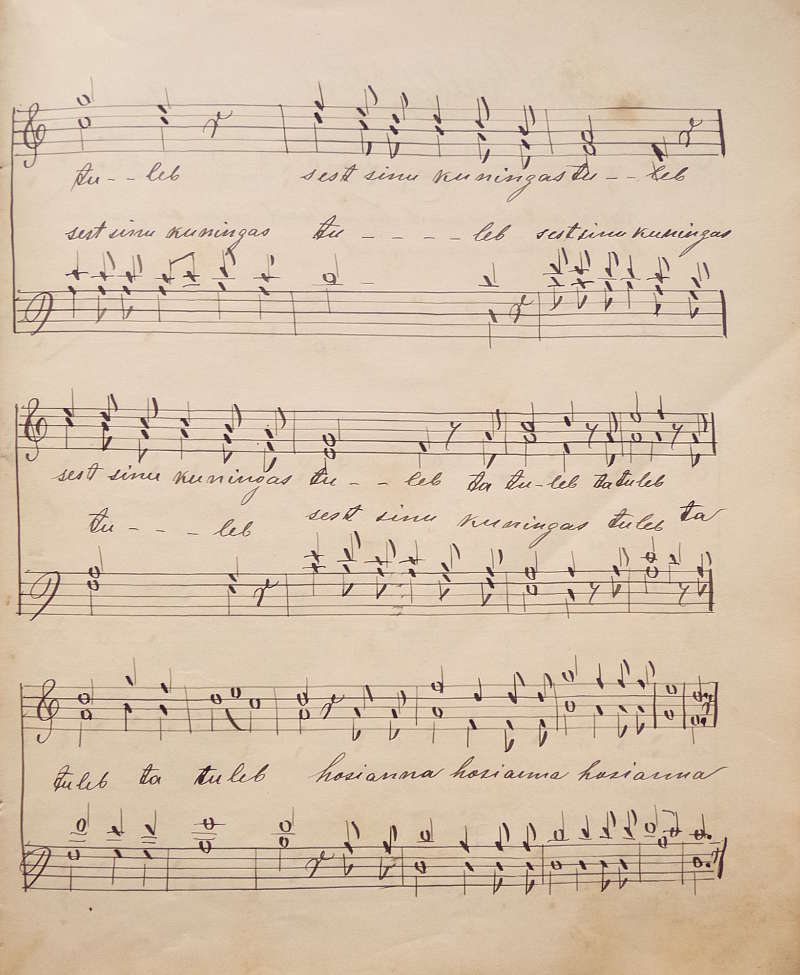 tu - - leb sest sinu kuningas tu - - leb
sest sinu kuningas tu - - - - leb sest sinu kuningas
sest sinu kuningas tu - - leb ta tu - leb ta tuleb
tu - - - leb sest sinu kuningas tuleb ta
tuleb ta tuleb hosianna hosianna hosianna